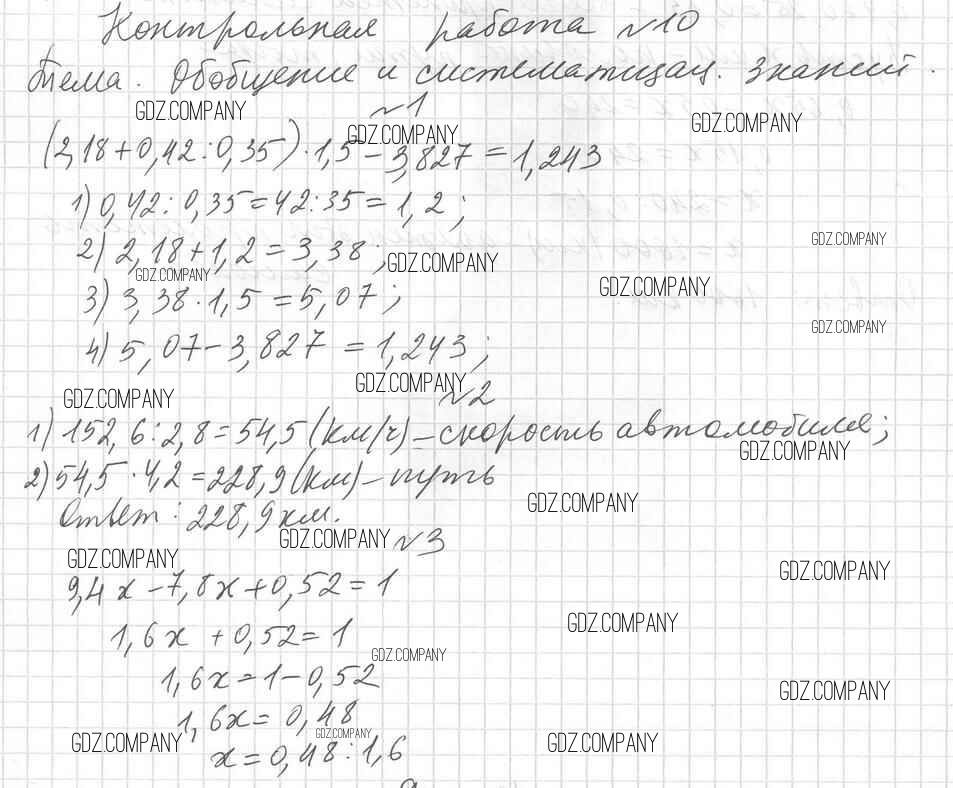 Контрольная работа №10
Тема. Обобщение и систематизац. знаний.
GDZ.COMPANY №1 GDZ.COMPANY
GDZ.COMPANY
(2,18+0,42:0,35)·1,5-3,827=1,243
1) 0,42:0,35=42:35=1,2;
2) 2,18+1,2=3,38; GDZ.COMPANY GDZ.COMPANY
GDZ.COMPANY GDZ.COMPANY
3) 3,38·1,5=5,07;
GDZ.COMPANY
4) 5,07-3,827=1,243;
GDZ.COMPANY GDZ.COMPANY №2
1) 152,6:2,8=54,5(км/ч)-скорость автомобиля;
GDZ.COMPANY
2) 54,5·4,2=228,9(км)-путь
GDZ.COMPANY
Ответ: 228,9 км.
GDZ.COMPANY №3
GDZ.COMPANY GDZ.COMPANY
9,4x-7,8x+0,52=1
GDZ.COMPANY
1,6x+0,52=1
GDZ.COMPANY
1,6x=1-0,52
GDZ.COMPANY
1,6x=0,48
GDZ.COMPANY GDZ.COMPANY GDZ.COMPANY
x=0,48:1,6